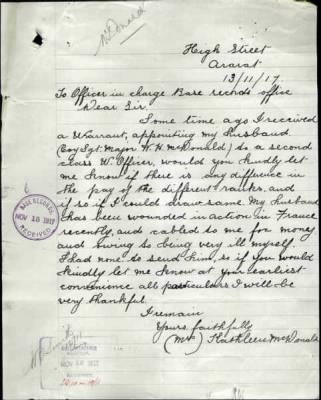 McDonald
High Street
Ararat
13/11/17
To Officer in charge Base records office
Dear Sir
Some time ago I received
a Warrant, appointing my husband.
(Coy Sgt. Major W. H. McDonald) to a second
class W. Officer, would you kindly let
me know if there is any difference in
the pay of the different ranks, and
if so if I could draw same. My husband
has been wounded in action in France
recently, and cabled to me for money
and owing to being very ill myself
I had none to send him, so if you would
kindly let me know at your earliest
convenience all particulars I will be
very thankful.
I remain
Yours faithfully
(Mrs) Kathleen McDonald
BASE RECORDS
NOV 16 1917
RECEIVED
NOV 1917